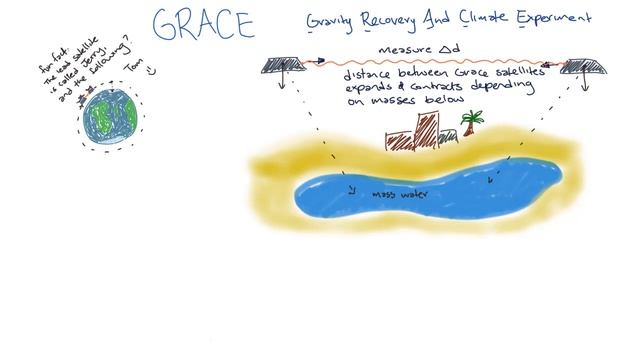 GRACE
Gravity Recovery And Climate Experiment
fun fact:
The lead satellite
is called Jerry,
and the following?
Tom
measure Δd
distance between Grace satellites
expands & contracts depending
on masses below
mass water